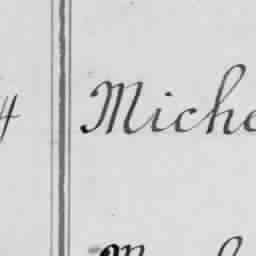 4 Miche